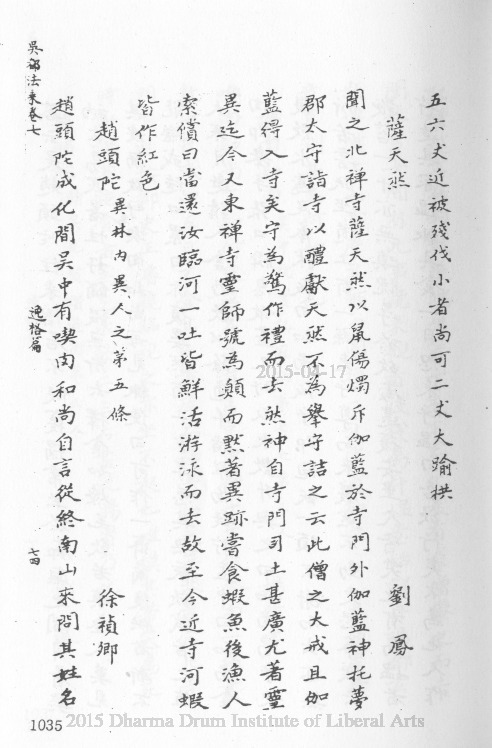 五六丈近被殘伐小者尚可二丈大踰拱
薩天然
劉鳳
聞之北禪寺薩天然以鼠傷燭斥伽藍於寺門外伽藍神托夢
郡太守詣寺以醴獻天然不為舉守詰之云此僧之大戒且伽
藍得入寺矣守為驚作禮而去然神自寺門司土甚廣尤著靈
異迄今又東禪寺靈師號為顛而默著異跡嘗食蝦魚後漁人
索償曰當還汝臨河一吐皆鮮活游泳而去故至今近寺河蝦
皆作紅色
趙頭陀
異林內異人之第五條
徐禎卿
趙頭陀成化間吳中有喫肉和尚自言從終南山來問其姓名
吳都法乘卷七
逸格篇
七四
1035
2015-04-17
2015 Dharma Drum Institute of Liberal Arts